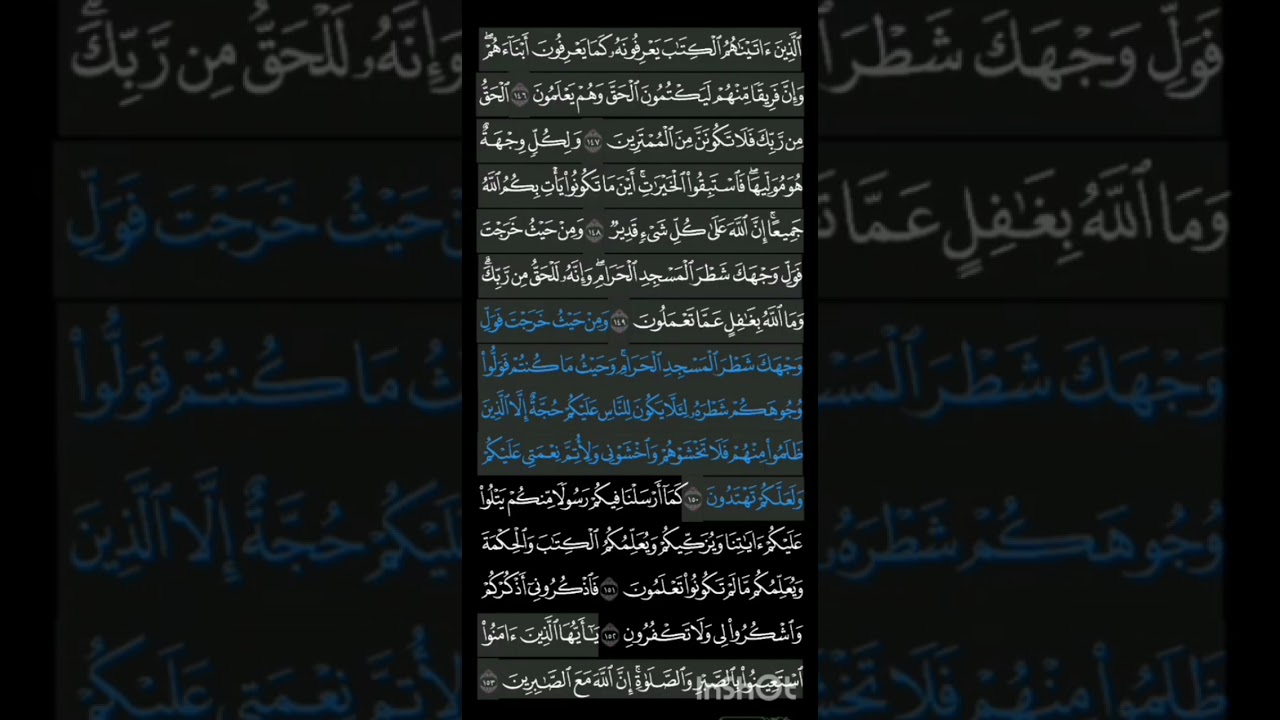 ٱلَّذِينَ ءَاتَيْنَٰهُمُ ٱلْكِتَٰبَ يَعْرِفُونَهُۥ كَمَا يَعْرِفُونَ أَبْنَآءَهُمْ ۖ
وَإِنَّ فَرِيقًا مِّنْهُمْ لَيَكْتُمُونَ ٱلْحَقَّ وَهُمْ يَعْلَمُونَ ١٤٦ ٱلْحَقُّ
مِن رَّبِّكَ فَلَا تَكُونَنَّ مِنَ ٱلْمُمْتَرِينَ ١٤٧ وَلِكُلٍّ وِجْهَةٌ
هُوَ مُوَلِّيهَا ۖ فَٱسْتَبِقُوا۟ ٱلْخَيْرَٰتِ ۚ أَيْنَ مَا تَكُونُوا۟ يَأْتِ بِكُمُ ٱللَّهُ
جَمِيعًا ۚ إِنَّ ٱللَّهَ عَلَىٰ كُلِّ شَىْءٍ قَدِيرٌ ١٤٨ وَمِنْ حَيْثُ خَرَجْتَ
فَوَلِّ وَجْهَكَ شَطْرَ ٱلْمَسْجِدِ ٱلْحَرَامِ ۖ وَإِنَّهُۥ لَلْحَقُّ مِن رَّبِّكَ ۗ
وَمَا ٱللَّهُ بِغَٰفِلٍ عَمَّا تَعْمَلُونَ ١٤٩ وَمِنْ حَيْثُ خَرَجْتَ فَوَلِّ
وَجْهَكَ شَطْرَ ٱلْمَسْجِدِ ٱلْحَرَامِ ۚ وَحَيْثُ مَا كُنتُمْ فَوَلُّوا۟
وُجُوهَكُمْ شَطْرَهُۥ لِئَلَّا يَكُونَ لِلنَّاسِ عَلَيْكُمْ حُجَّةٌ إِلَّا ٱلَّذِينَ
ظَلَمُوا۟ مِنْهُمْ فَلَا تَخْشَوْهُمْ وَٱخْشَوْنِى وَلِأُتِمَّ نِعْمَتِى عَلَيْكُمْ
وَلَعَلَّكُمْ تَهْتَدُونَ ١٥٠ كَمَآ أَرْسَلْنَا فِيكُمْ رَسُولًا مِّنكُمْ يَتْلُوا۟
عَلَيْكُمْ ءَايَٰتِنَا وَيُزَكِّيكُمْ وَيُعَلِّمُكُمُ ٱلْكِتَٰبَ وَٱلْحِكْمَةَ
وَيُعَلِّمُكُم مَّا لَمْ تَكُونُوا۟ تَعْلَمُونَ ١٥١ فَٱذْكُرُونِىٓ أَذْكُرْكُمْ
وَٱشْكُرُوا۟ لِى وَلَا تَكْفُرُونِ ١٥٢ يَٰٓأَيُّهَا ٱلَّذِينَ ءَامَنُوا۟
ٱسْتَعِينُوا۟ بِٱلصَّبْرِ وَٱلصَّلَوٰةِ ۚ إِنَّ ٱللَّهَ مَعَ ٱلصَّٰبِرِينَ ١٥٣
InShOt